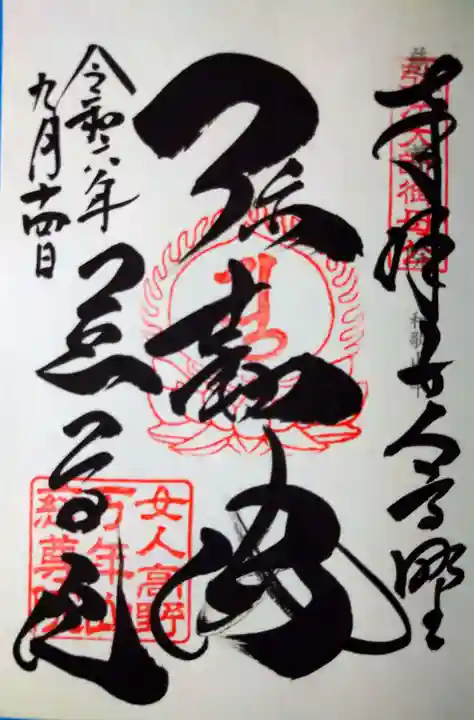 奉拝 女人高野
弥勒佛
慈尊院
令和六年
九月十四日
女人高野
万年山
慈尊院